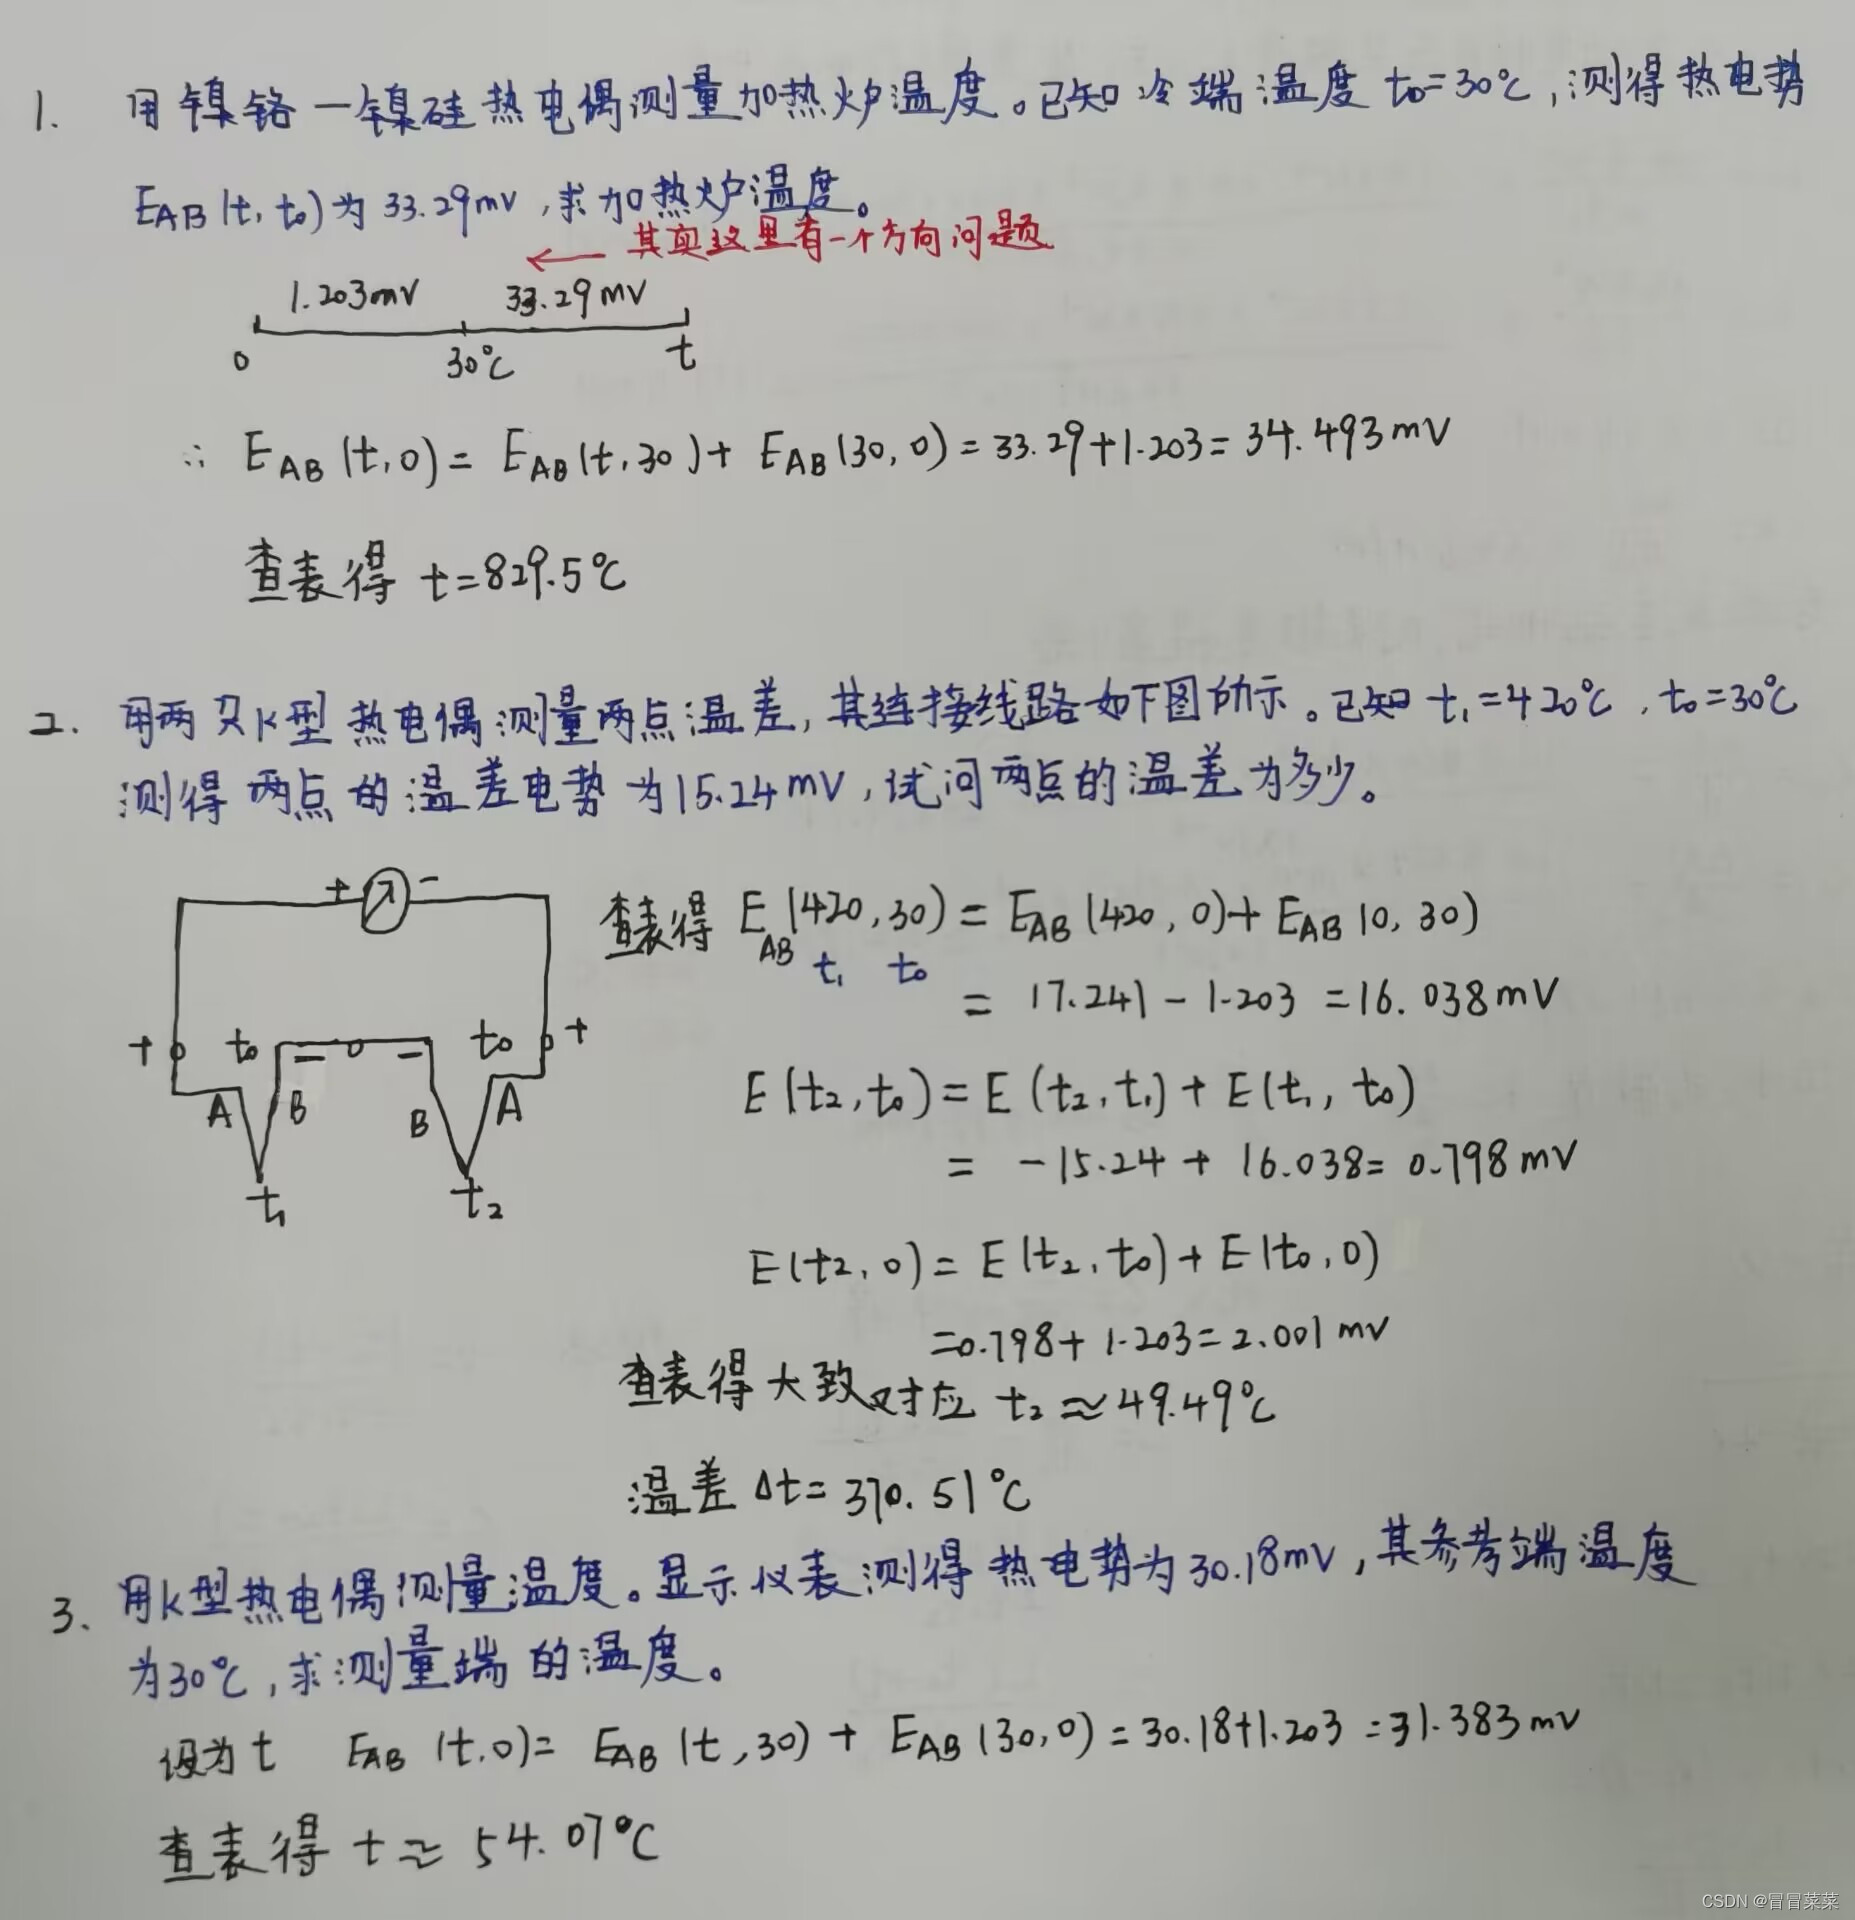 1. 用镍铬一镍硅热电偶测量加热炉温度。已知冷端温度 t₀=30℃,测得热电势
EAB(t, t₀)为33.29mV,求加热炉温度。
← 其实这里有一个方向问题
1.203mV 33.29mV
0 30℃ t
∴ EAB(t,0)= EAB(t,30)+ EAB(30,0)=33.29+1.203=34.493mV
查表得 t=829.5℃
2. 用两只K型热电偶测量两点温差,其连接线路如下图所示。已知 t₁=420℃,t₀=30℃
测得两点的温差电势为15.24mV,试问两点的温差为多少。
+ -
+ t₀ - - t₀ +
A B B A
t₁ t₂
查表得 EAB(420,30)= EAB(420,0)+ EAB(0,30)
t₁ t₀
= 17.241-1.203=16.038mV
E(t₂,t₀)=E(t₂,t₁)+E(t₁,t₀)
= -15.24+16.038=0.798mV
E(t₂,0)=E(t₂,t₀)+E(t₀,0)
=0.798+1.203=2.001mV
查表得大致对应 t₂≈49.49℃
温差 Δt=370.51℃
3. 用K型热电偶测量温度。显示仪表测得热电势为30.18mV,其参考端温度
为30℃,求测量端的温度。
设为t EAB(t,0)= EAB(t,30)+ EAB(30,0)=30.18+1.203=31.383mV
查表得 t≈54.07℃
CSDN @冒冒菜菜